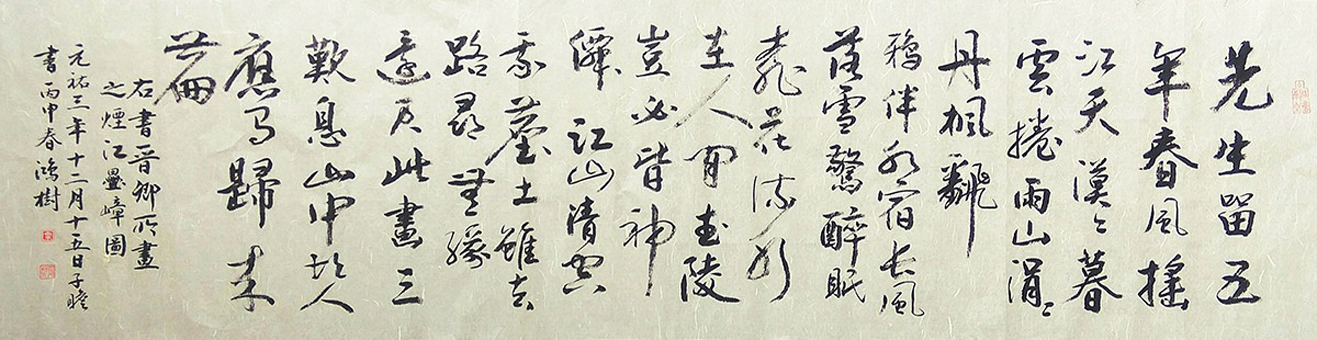 先生留五
年春風搖
江天漠々暮
雲捲雨山涓々
丹楓翻
鴉伴水宿長風
落雪驚醉眠
桃花流水
在人間武陵
豈必皆神
僊江山清空
我塵土雖去
路尋無緣
還君此畫三
歎息山中故人
應歸来
篇
右書晋卿所畫
之煙江疊嶂圖
元祐三年十二月十五日子瞻
書丙申春鴻樹